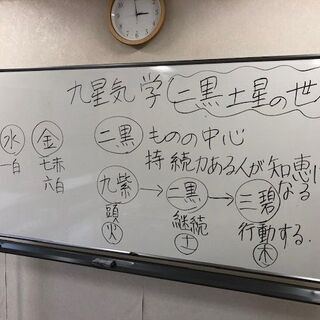 九星気学 二黒土星の世
水 金 二黒 ものの中心
一白 七赤 持続力ある人が知恵に
六白 なる
九紫 → 二黒 → 三碧
頭 継続 行動する.
火 土 木